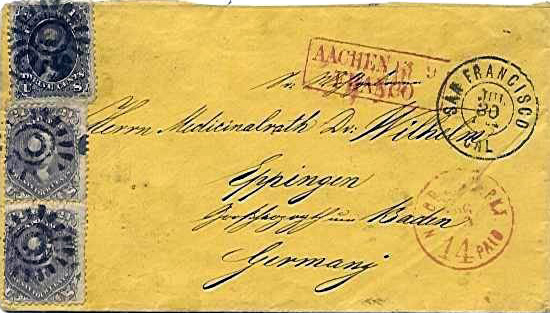 AACHEN 13 9
FRANCO
SAN FRANCISCO
JUL
30
CAL
Herrn Medicinalrath Dr. Wilhelmi
Eppingen
Großherzogthum Baden
Germany
N. YORK PKT
14
PAID